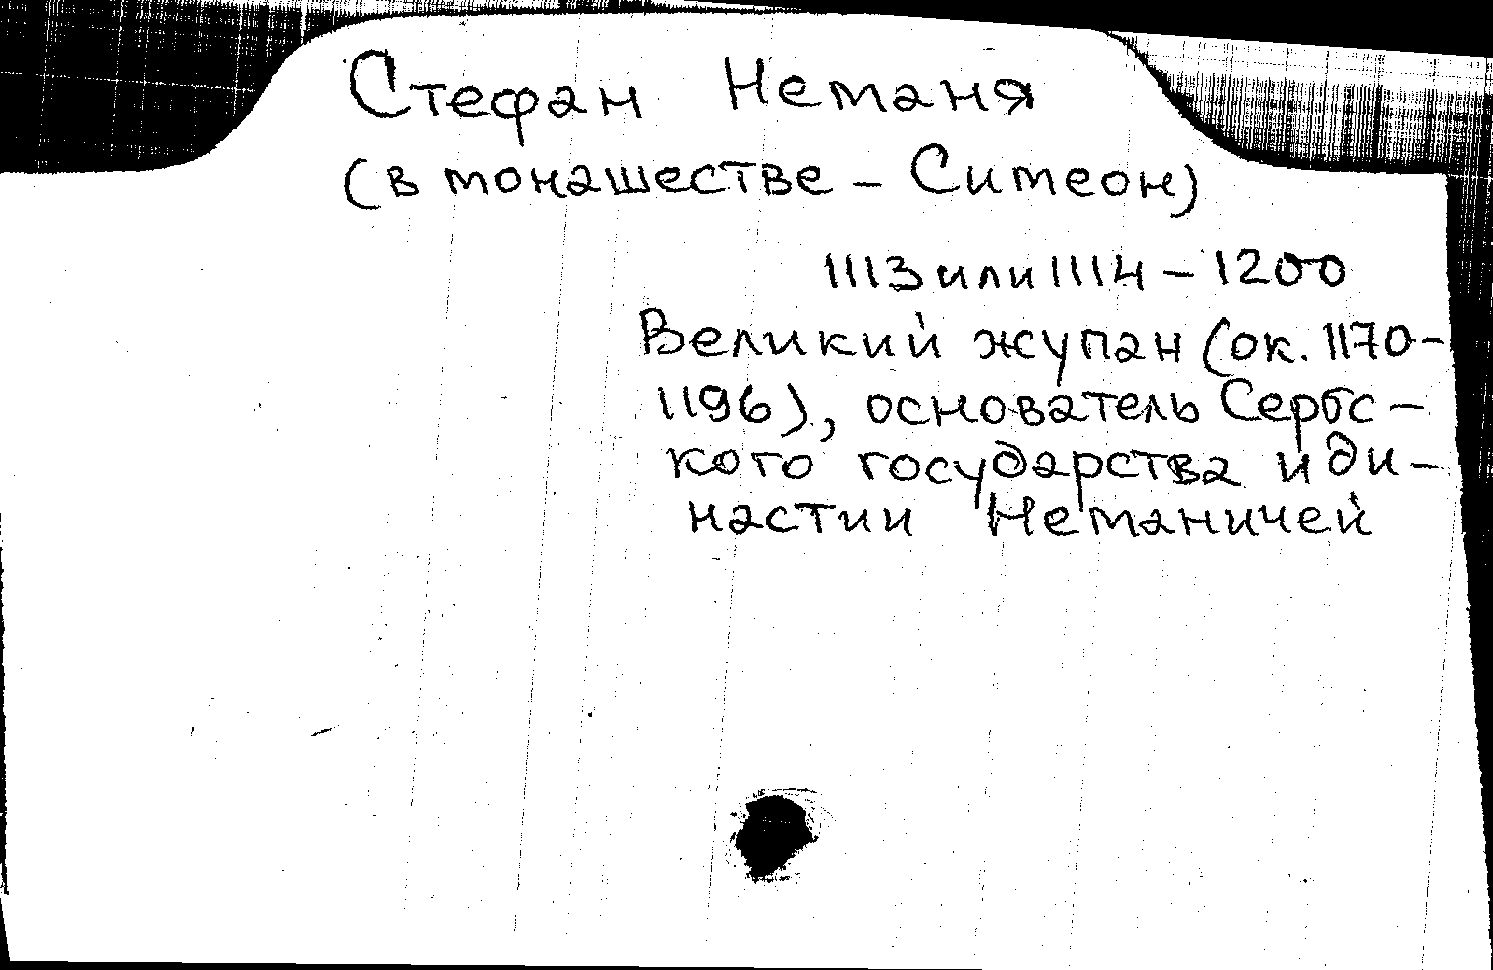 Стефан Неманя
(в монашестве - Симеон)
1113 или 1114 - 1200
Великий жупан (ок. 1170-
1196), основатель Сербс-
кого государства и ди-
настии Неманичей